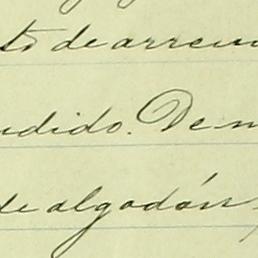 to de arren
ndido. De m
de algodón,